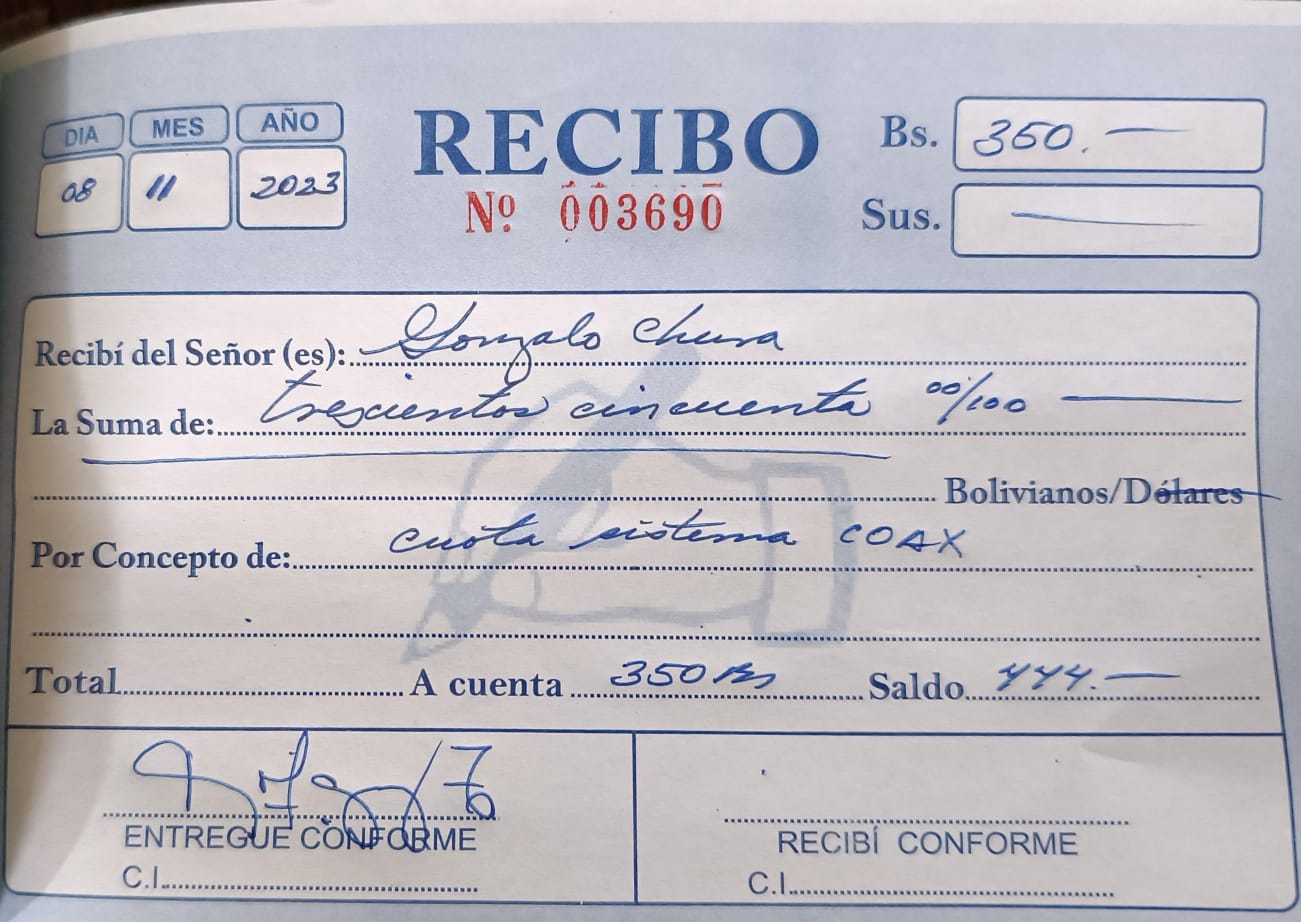 DIA MES AÑO
08 11 2023
RECIBO
Nº 003690
Bs. 350.—
Sus. —
Recibí del Señor (es): Gonzalo Chura
La Suma de: trescientos cincuenta 00/100
Bolivianos/Dólares
Por Concepto de: cuota sistema COAX
Total A cuenta 350 Bs Saldo 444.—
ENTREGUE CONFORME
C.I.
RECIBÍ CONFORME
C.I.